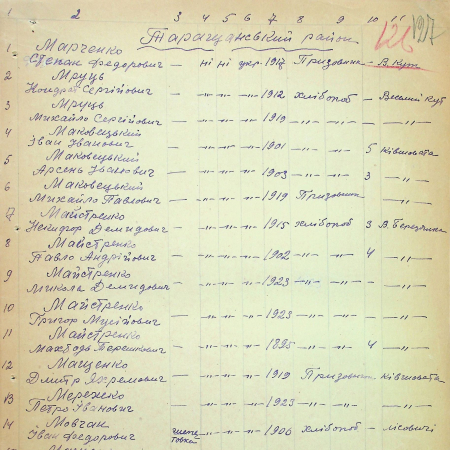 1 2 3 4 5 6 7 8 9 10 11
Таращанський район 126 1917
1 Марченко
Степан Федорович — ні ні укр. 1917 Призовник — В. Куп
2 Мруць
Кондрат Сергійович — -"- -"- -"- 1912 хлібороб — Веселий Куб
3 Мруць
Михайло Сергійович — -"- -"- -"- 1919 -"- -"- — -"-
4 Маковецький
Іван Іванович — -"- -"- -"- 1901 -"- -"- 5 Ківшовата
5 Маковецький
Арсень Іванович — -"- -"- -"- 1903 -"- -"- 3 -"-
6 Маковецький
Михайло Павлович — -"- -"- -"- 1919 Призовник -"-
7 Майстренко
Никифор Демидович — -"- -"- -"- 1915 хлібороб 3 В. Березянка
8 Майстренко
Павло Андрійович — -"- -"- -"- 1902 -"- -"- 4 -"-
9 Майстренко
Микола Демидович — -"- -"- -"- 1923 -"- -"- — -"-
10 Майстренко
Григор Мусійович — -"- -"- -"- 1923 -"- -"- — -"-
11 Майстренко
— -"- -"- -"- 1895 -"- -"- 4 -"-
12 Мащенко
Дмитро Яхремович — -"- -"- -"- 1919 Призовник — Ківшовата
13 Мережко
Петро Іванович — -"- -"- -"- 1923 -"- -"- — -"-
14 Мовчан
Іван Федорович -"- -"- -"- 1900 хлібороб — лісовичі